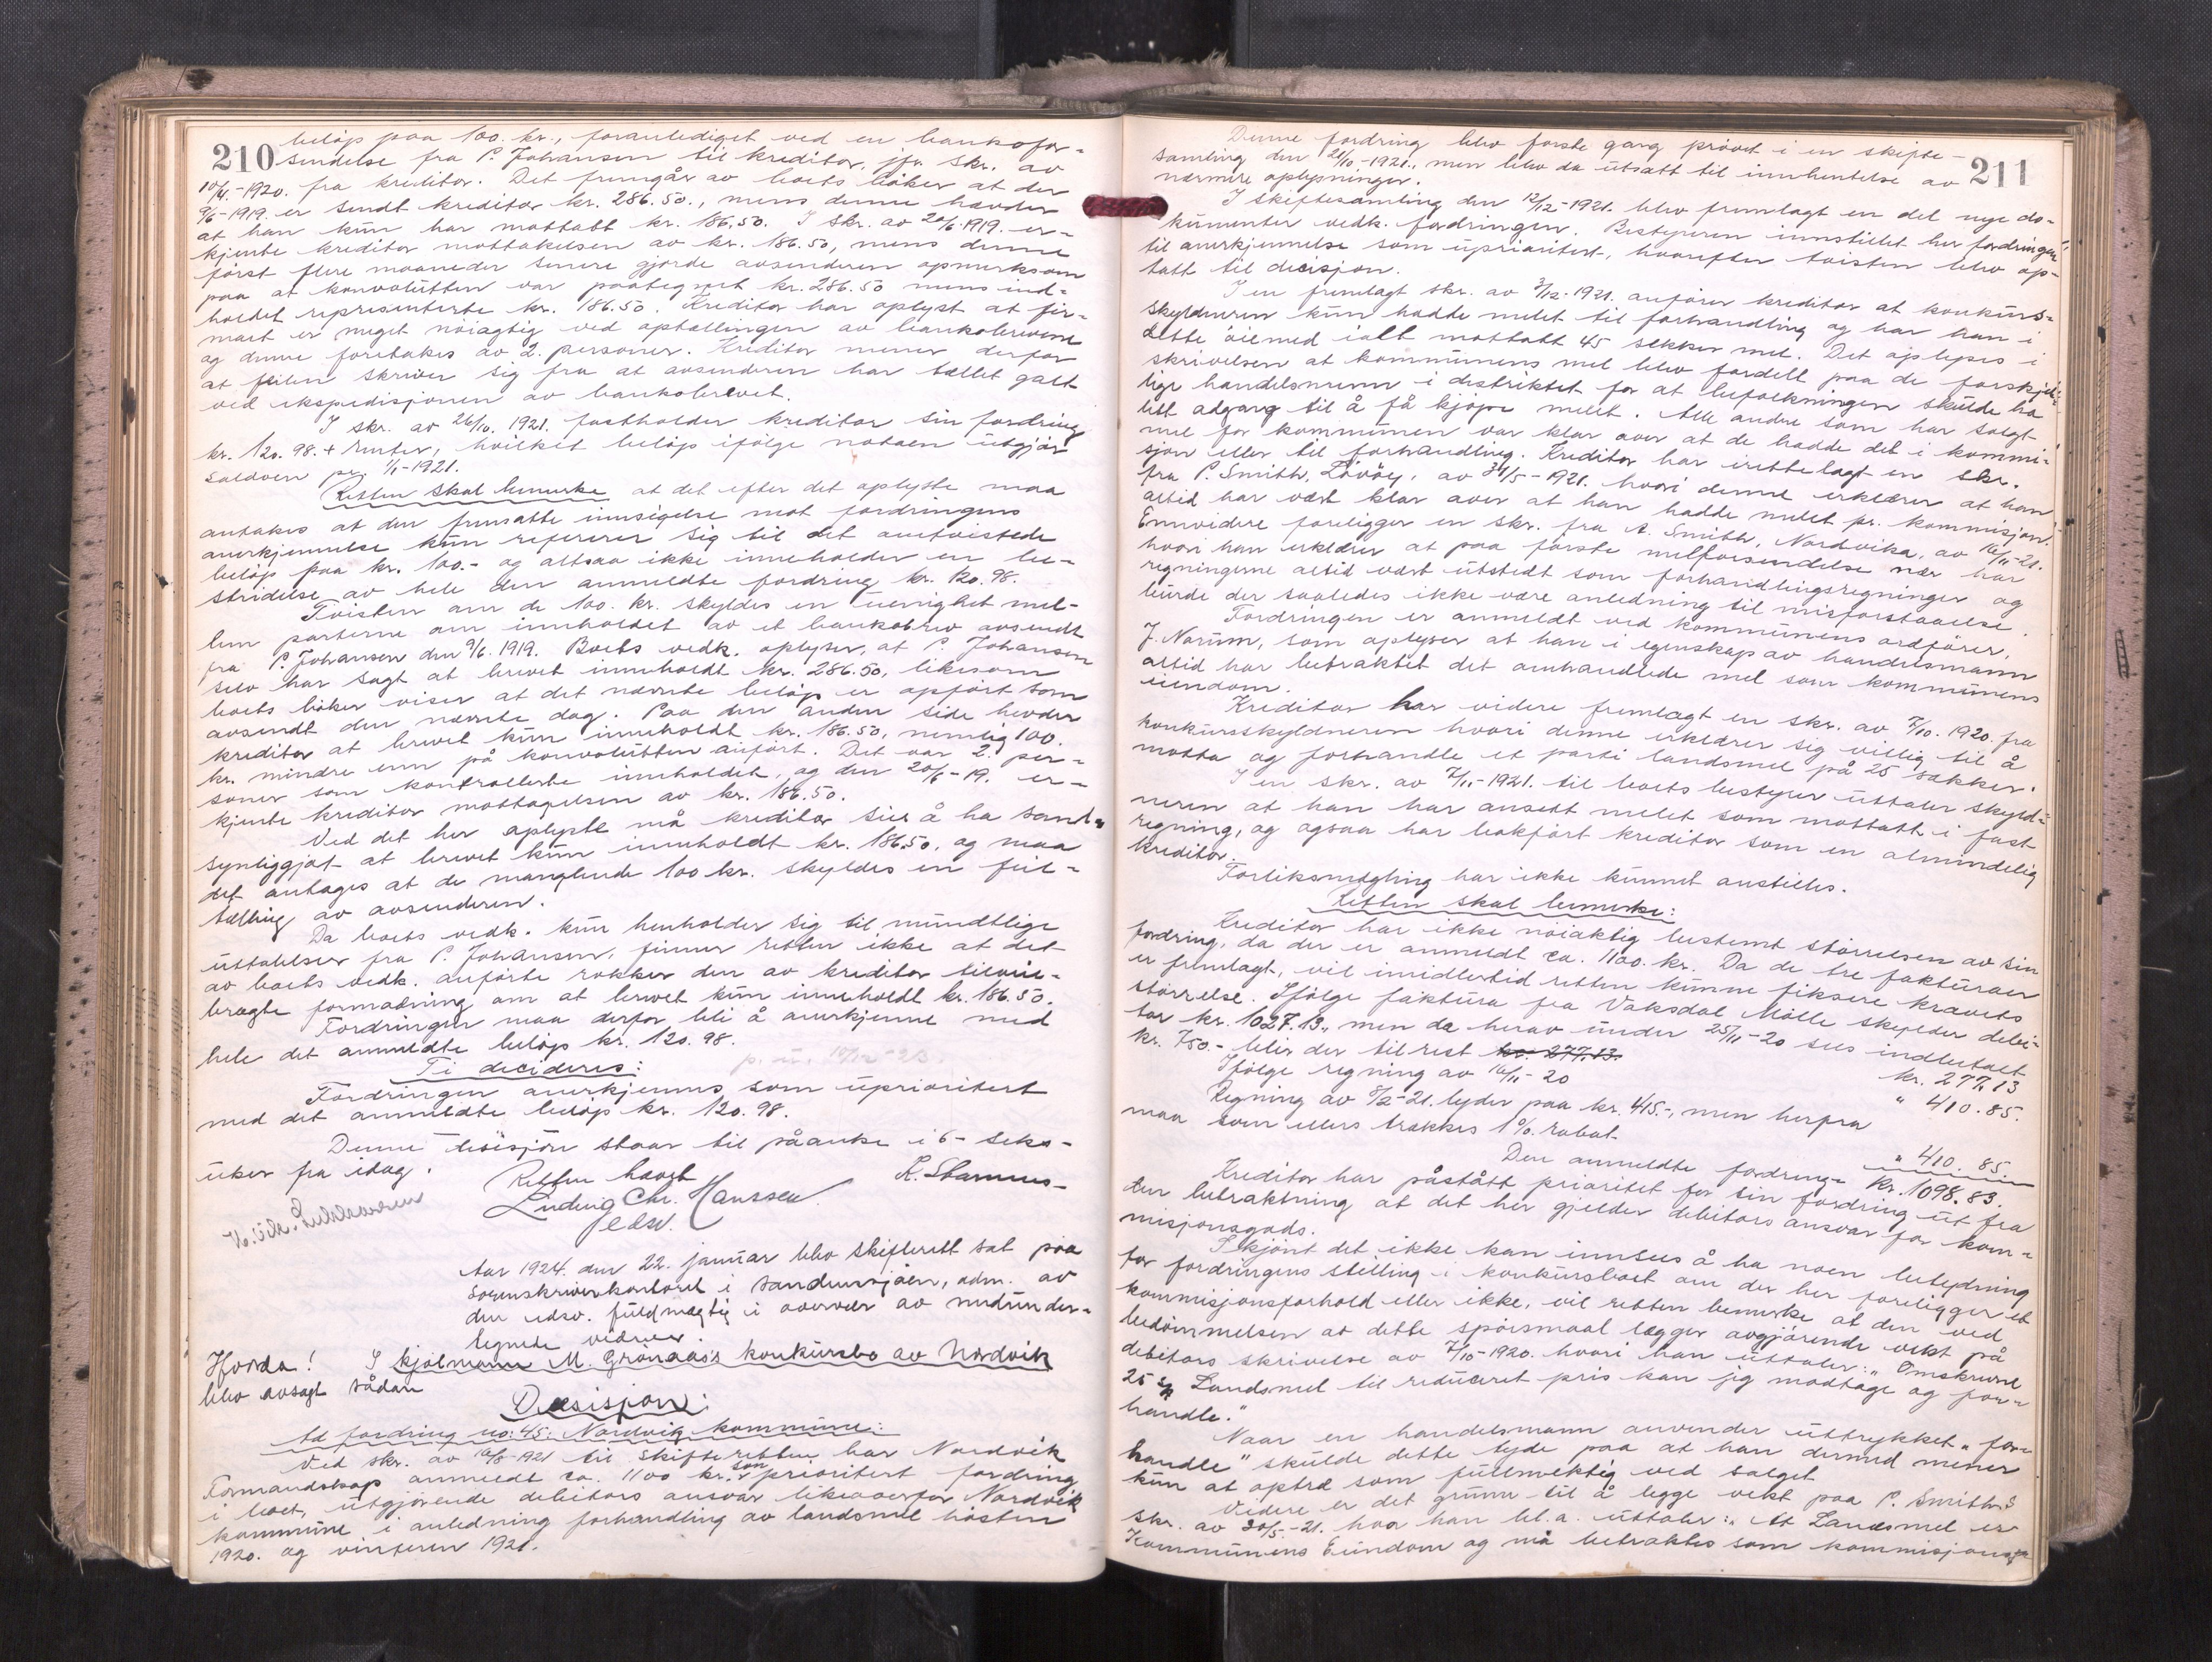 210
beløp paa 100. kr., foranlediget ved en bankofor-
sendelse fra P. Johansen til kreditor, jfr. skr. av
10/4.-1920. fra kreditor. Det fremgår av boets bøker at der
9/6-1919. er sendt kreditor kr. 286.50., mens denne hævder
at han kun har mottatt kr. 186.50. I skr. av 20/6.1919. er-
kjente kreditor mottakelsen av kr. 186.50, mens denne
først flere maaneder senere gjorde avsenderen opmerksom
paa at konvolutten var paategnet kr. 286.50 mens ind-
holdet representerte kr. 186.50. Kreditor har oplyst at fir-
maet er meget nøiagtig ved optællingen av bankobrevene
og denne foretakes av 2. personer. Kreditor mener derfor
at feilen skriver sig fra at avsenderen har tællet galt
ved ekspedisjonen av bankobrevet.
I skr. av 26/10. 1921. fastholder kreditor sin fordring
kr. 120.98. + renter, hvilket beløp ifølge notaen utgjør
saldoen pr. 1/1-1921.
Retten skal bemerke at det efter det oplyste maa
antakes at den fremsatte innsigelse mot fordringens
anerkjennelse kun refererer sig til det omtvistede
beløp paa kr. 100.- og altsaa ikke inneholder en be-
stridelse av hele den anmeldte fordring kr. 120.98.
Tvisten om de 100. kr. skyldes en uenighet mel-
lem parterne om innholdet av et bankobrev avsendt
fra P. Johansen den 9/6. 1919. Boets vedk. oplyser, at P. Johansen
selv har sagt at brevet inneholdt kr. 286.50, likesom
boets bøker viser at det nævnte beløp er opført som
avsendt den nævnte dag. Paa den anden side hevder
kreditor at brevet kun inneholdt kr. 186.50, nemlig 100.
kr. mindre enn på konvolutten anført. Det var 2. per-
soner som kontrollerte inneholdet, og den 20/6-19. er-
kjente kreditor mottagelsen av kr. 186.50.
Ved det her oplyste må kreditor sies å ha sand-
synliggjøt at brevet kun inneholdt kr. 186.50. og maa
det antages at de manglende 100 kr. skyldes en feil-
tælling av avsenderen.
Da boets vedk. kun henholder sig til mundtlige
uttalelser fra P. Johansen, finner retten ikke at det
av boets vedk. anførte rokker den av kreditor tilveie-
bragte formodning om at brevet kun inneholdt kr. 186.50.
Fordringen maa derfor bli å anerkjenne med
hele det anmeldte beløp kr. 120.98.
p. u. 10/12-23.
Ti decideres:
Fordringen anerkjennes som uprioritert
med det anmeldte beløp kr. 120.98.
Denne desisjon staar til påanke i 6- seks-
uker fra idag.
Retten hævet
Ludvig Chr. Hanssen
edsv.
K. Stamnes-
Aar 1924. den 22. januar blev skifterett sat paa
sorenskriverkontoret i Sandnessjøen, adm. av
den edsv. fuldmegtig i overvær av nedunder-
tegnede vidner.
Hvorda!
I kjølmann M. Grönaas's konkursbo av Nordvik
blev avsagt sådan
Desisjon:
Ad fordring no: 45: Nordvik kommune:
Ved skr. av 16/8-1921 til skifteretten har Nordvik
Formandskap anmeldt ca. 1100 kr. som prioritert fordring
i boet, utgjørende debitors ansvar likeoverfor Nordvik
kommune i anledning forhandling av landsmel høsten
1920. og vinteren 1921.
211
Denne fordring blev første gang prøvet i en skifte-
samling den 21/10-1921., men blev da utsatt til innhentelse av
nærmere oplysninger.
I skiftesamling den 12/12-1921. blev fremlagt en del nye do-
kumenter vedk. fordringen. Bestyreren innstillet her fordringen
til anerkjennelse som uprioritert, hvorefter tvisten blev op-
tatt til decisjon.
I en fremlagt skr. av 7/12-1921. anfører kreditor at konkurs-
skyldneren kun hadde melet til forhandling og har han i
dette øiemed ialt mottatt 45 sekker mel. Det oplyses i
skrivelsen at kommunens mel blev fordelt paa de forskjel-
lige handelsmenn i distriktet for at befolkningen skulde ha
lett adgang til å få kjøpe melet. Alle andre som har solgt
mel for kommunen var klar over at de hadde det i kommi-
sjon eller til forhandling. Kreditor har irettelagt en skr.
fra P. Smith, Løvøy, av 31/5-1921. hvori denne erklærer at han
altid har vært klar over at han hadde melet pr. kommisjon.
Ennvidere foreligger en skr. fra A. Smith, Nordvika, av 16/11-21.
hvori han erklærer at paa første melforsendelse nær har
regningerne altid vært utstedt som forhandlingsregninger og
burde der saaledes ikke være anledning til misforstaaelse.
Fordringen er anmeldt ved kommunens ordfører,
J. Norum, som oplyser at han i egenskap av handelsmann
altid har betraktet det omhandlede mel som kommunens
eiendom.
Kreditor har videre fremlagt en skr. av 7/10. 1920. fra
konkursskyldneren hvori denne erklærer sig villig til å
motta og forhandle et parti landsmel på 25 sækker.
I en skr. av 7/11-1921. til boets bestyrer uttaler skyld-
neren at han har ansett melet som mottatt i fast
regning, og ogsaa har bokført kreditor som en almindelig
kreditor.
Forliksmægling har ikke kunnet anstilles.
Retten skal bemerke:
Kreditor har ikke nøiaktig bestemt størrelsen av sin
fordring, da der er anmeldt ca. 1100. kr. Da de tre fakturaer
er fremlagt, vil imidlertid retten kunne fiksere kravets
størrelse. Ifølge faktura fra Vaksdal Mølle skylder debi-
tor kr. 1027.13., men da herav under 25/11-20 sees indbetalt
kr. 750.- blir der til rest kr. 277.13. kr. 277.13
Ifølge regning av 16/11-20 " 410.85.
Regning av 8/2-21. lyder paa kr. 415.-, men herpra
maa som ellers trækkes 1% rabat " 410.85
Den anmeldte fordring = kr. 1098.83.
Kreditor har påstått prioritet for sin fordring ut fra
den betraktning at det her gjelder debitors ansvar for kom-
misjonsgods.
Skjønt det ikke kan innsees å ha noen betydning
for fordringens stilling i konkursboet om der her foreligger et
kommisjonsforhold eller ikke, vil retten bemerke at den ved
bedømmelsen av dette spørsmaal lægger avgjørende vekt på
debitors skrivelse av 7/10-1920. hvori han uttaler: "Omskrevne
25 sk Landsmel til reduceret pris kan jeg modtage og for-
handle."
Naar en handelsmann anvender uttrykket "for-
handle" skulde dette tyde paa at han dermed mener
kun at optræ som fullmektig ved salget.
Videre er det grunn til å legge vekt paa P. Smiths
skr. av 30/5.-21. hvor han bl.a. uttaler: "At Landsmel er
Kommunens Eiendom og må betraktes som kommisjons-